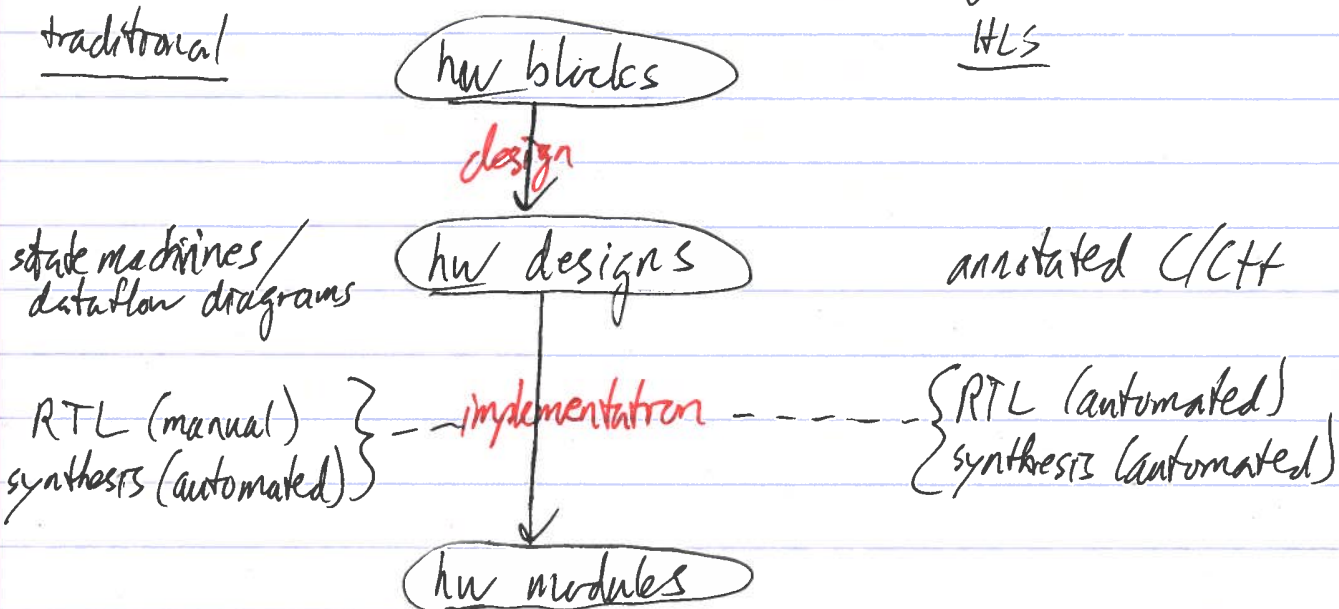 traditional
HLS
hw blocks
design
state machines/
dataflow diagrams
hw designs
annotated C/C++
RTL (manual)
synthesis (automated)
implementation
RTL (automated)
synthesis (automated)
hw modules